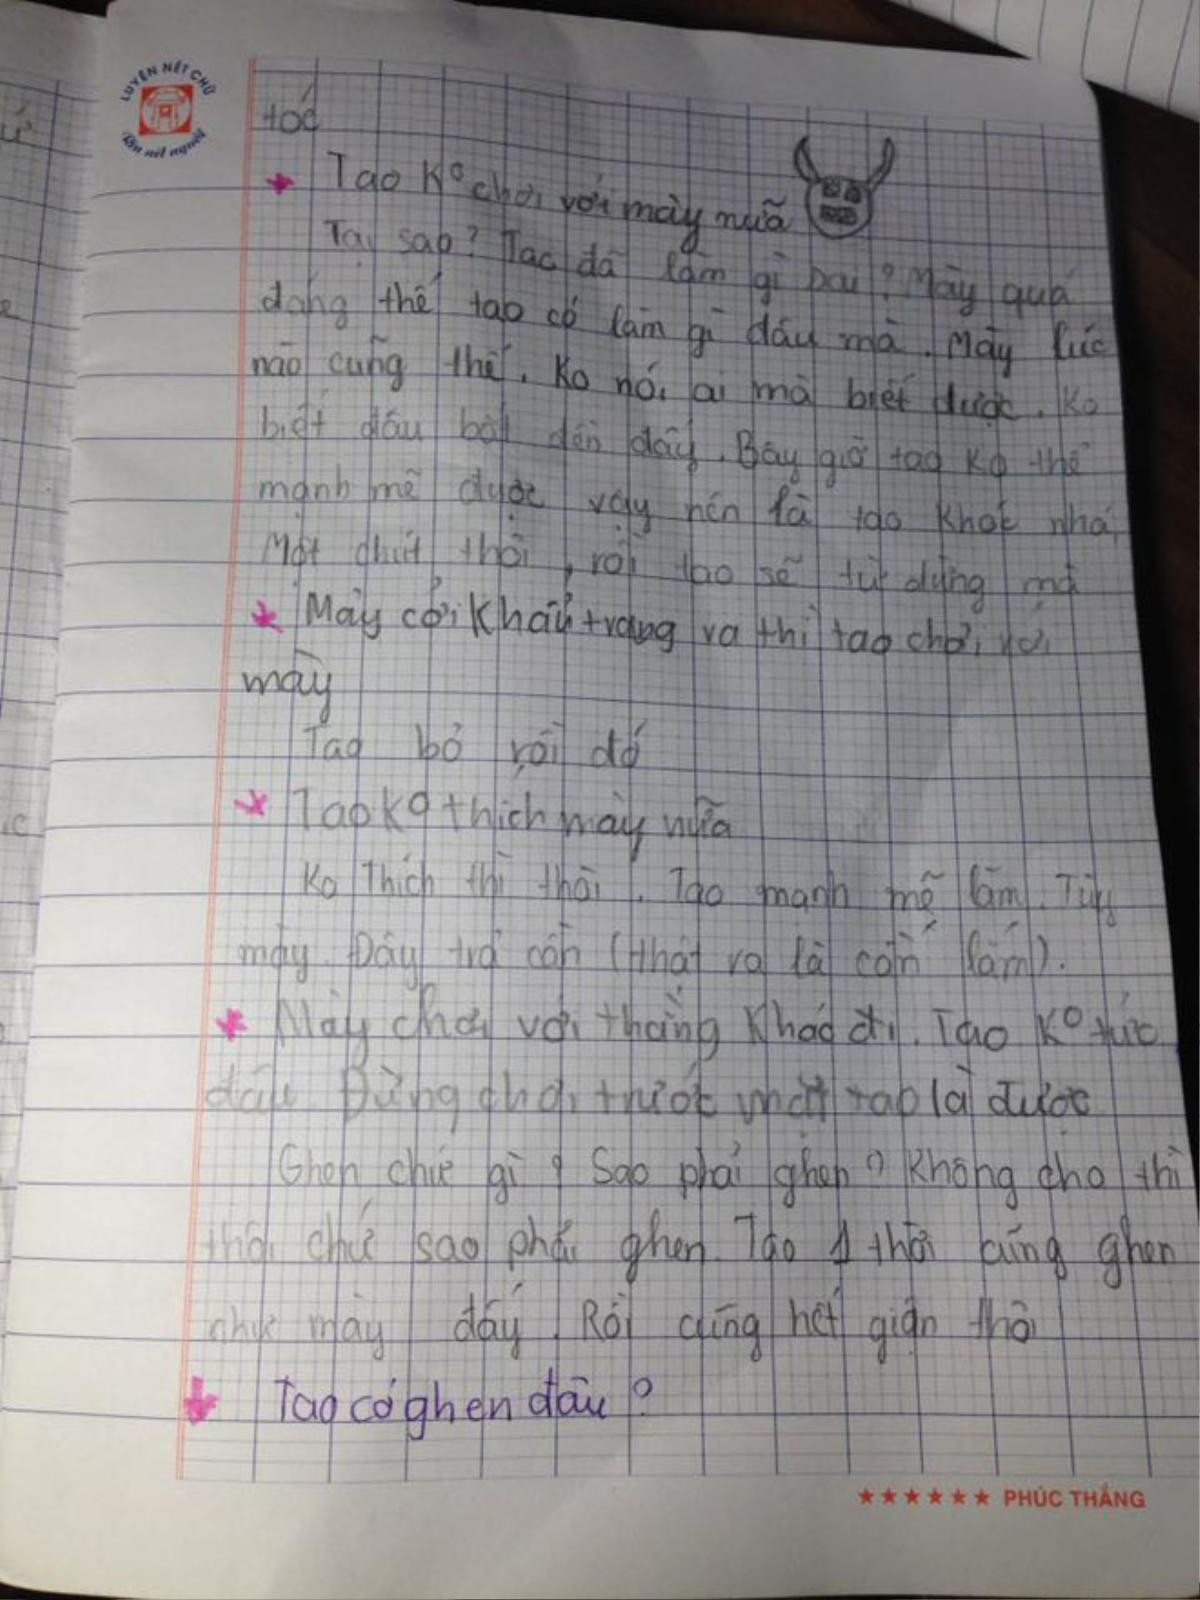 LUYỆN NÉT CHỮ
Rèn nết người
tóc
Tao Kº chơi với mày nữa
Tại sao? Tao đã làm gì sai? Mày quá
đáng thế tao có làm gì đâu mà. Mày lúc
nào cũng thế. Ko nói ai mà biết được. Ko
biết đâu bắt đền đấy. Bây giờ tao ko thể
mạnh mẽ được vậy nên là tao khóc nhá
Một chút thôi, rồi tao sẽ tự dừng mà
Mày cởi khẩu trang ra thì tao chơi với
mày
Tao bỏ rồi đó
Tao Kº thích mày nữa
Ko Thích thì thôi. Tao mạnh mẽ lắm. Tùy
mày. Đây trả cần (thật ra là cần lắm).
Mày chơi với thằng khác đi. Tao Kº tức
đâu. Đừng chơi trước mặt tao là được
Ghen chứ gì? Sao phải ghen? Không cho thì
thôi chứ sao phải ghen. Tao 1 thời cũng ghen
như mày đấy. Rồi cũng hết giận thôi
Tao có ghen đâu?
★★★★★★ PHÚC THẮNG